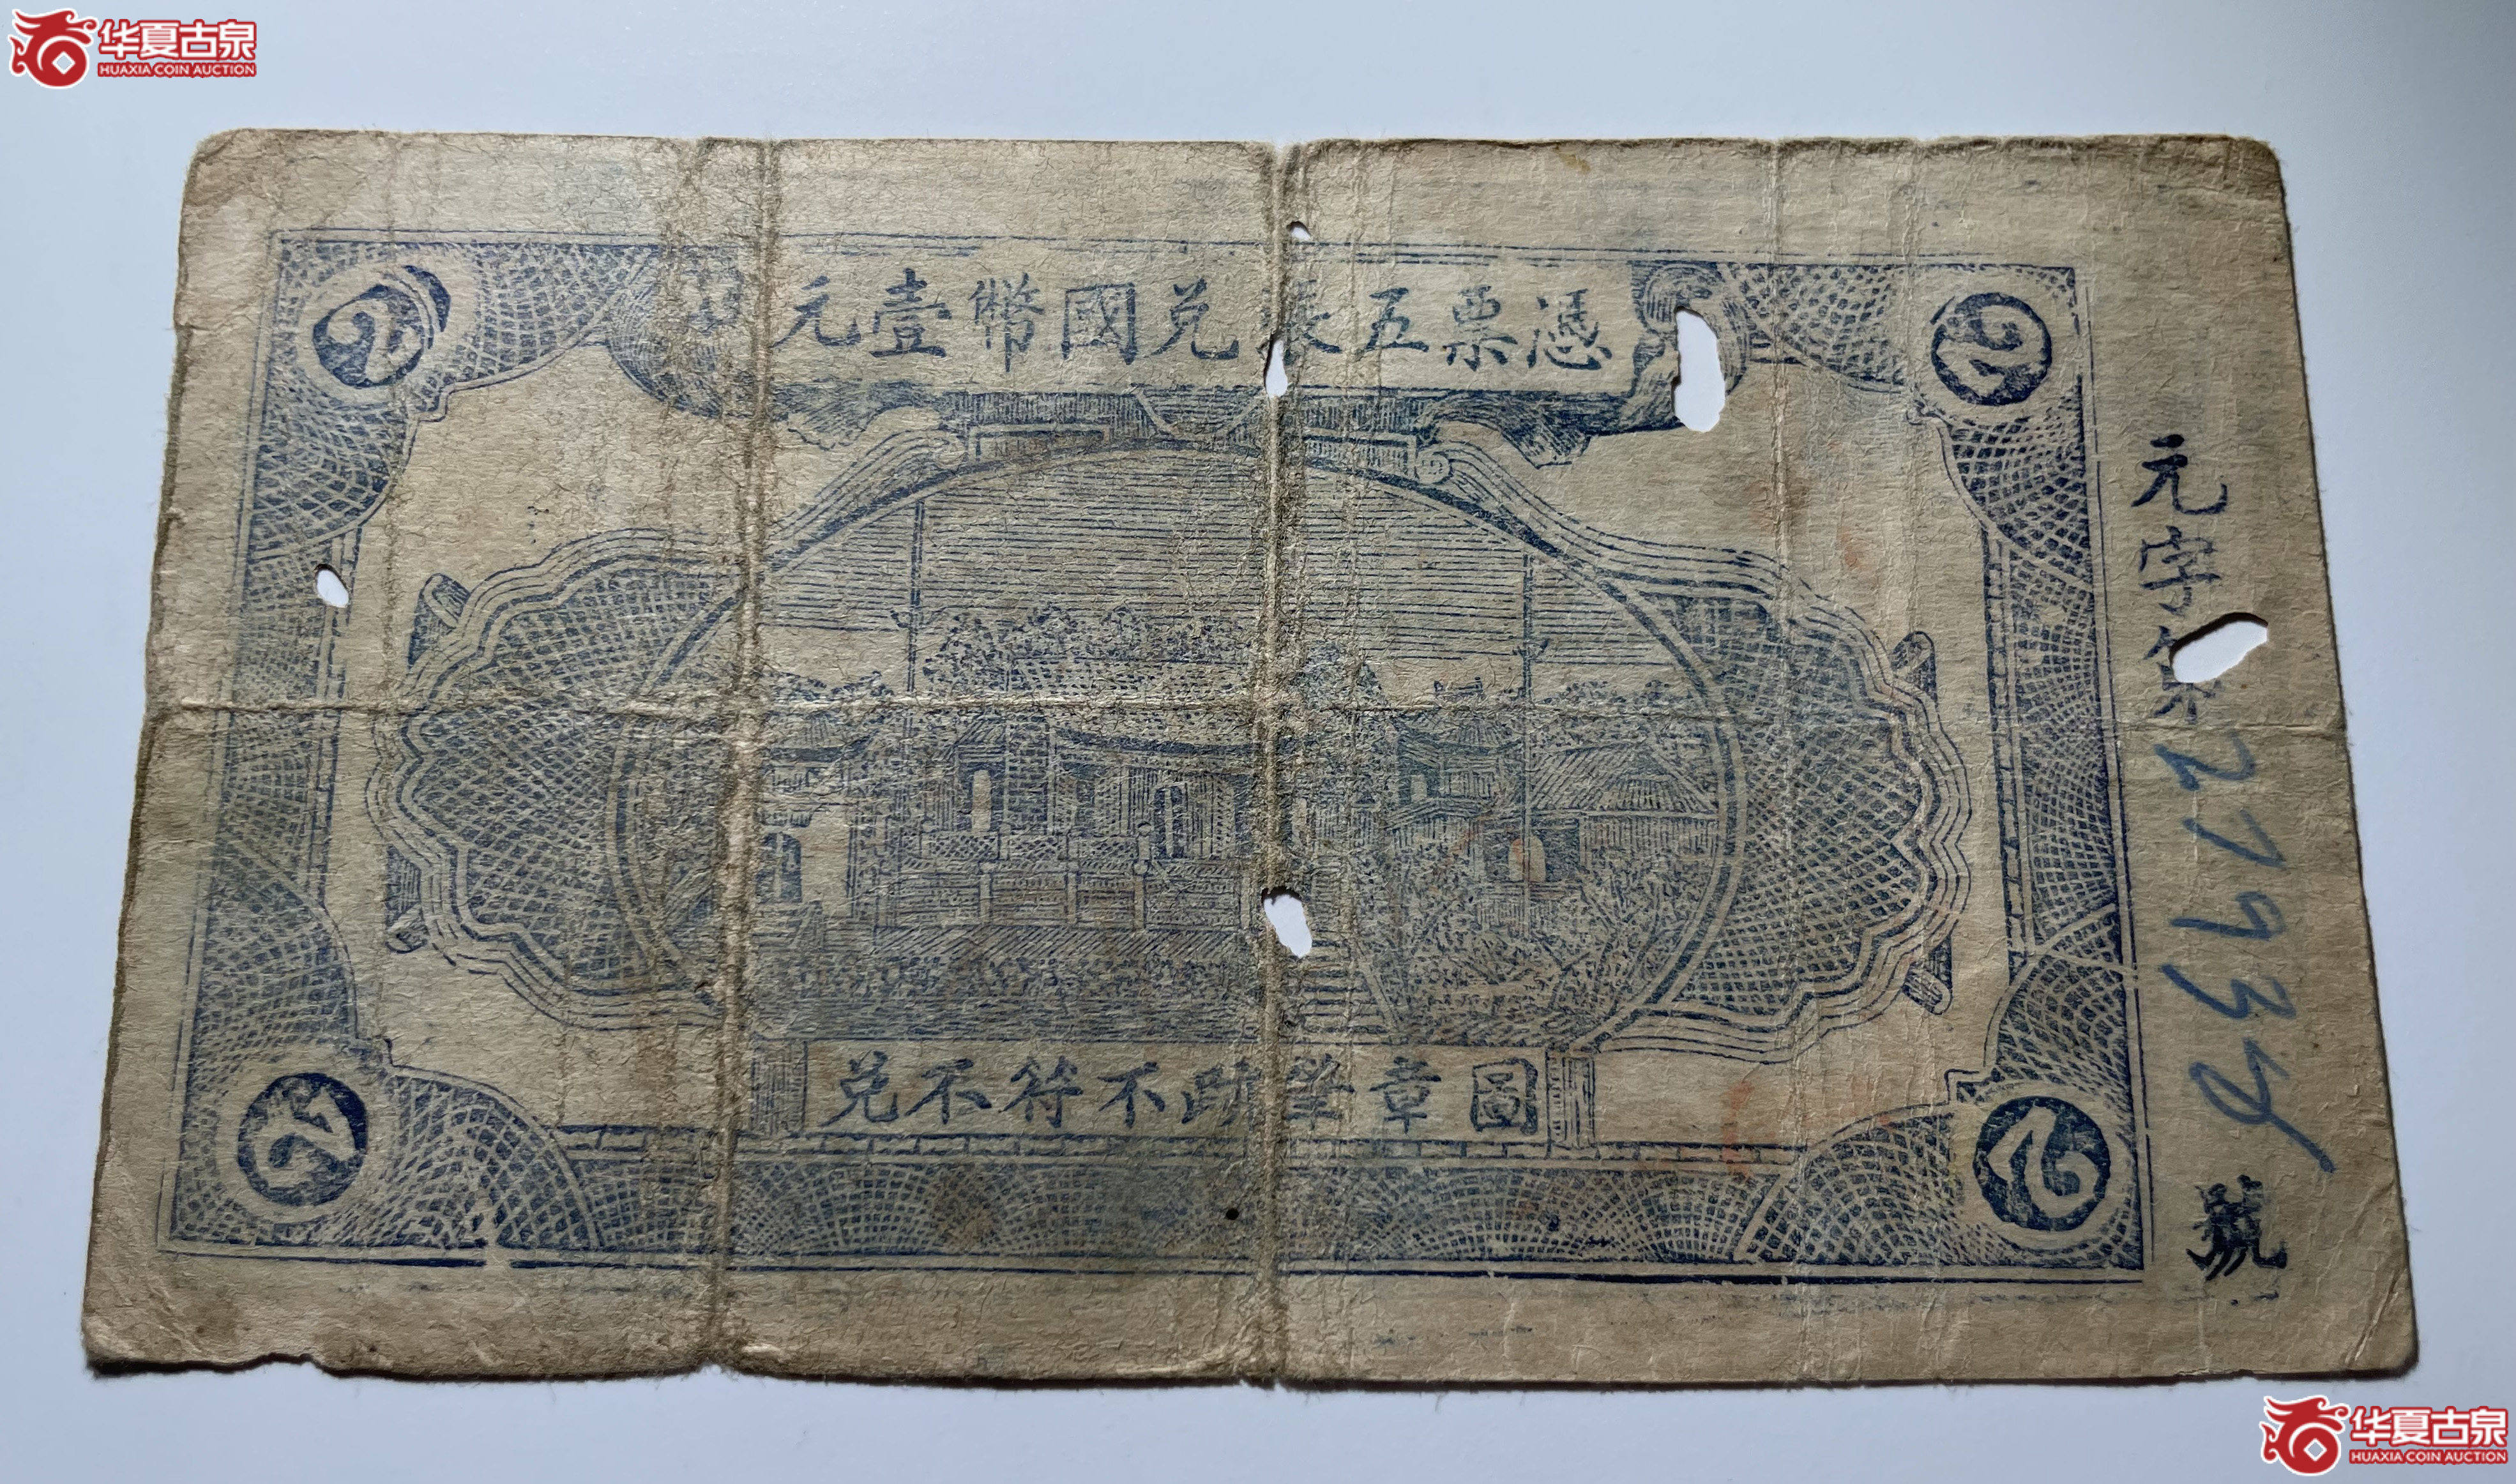 华夏古泉
HUAXIA COIN AUCTION
憑票五張兑國幣壹元
2
2
元字第27934號
圖章筆跡不符不兑
2
2
华夏古泉
HUAXIA COIN AUCTION